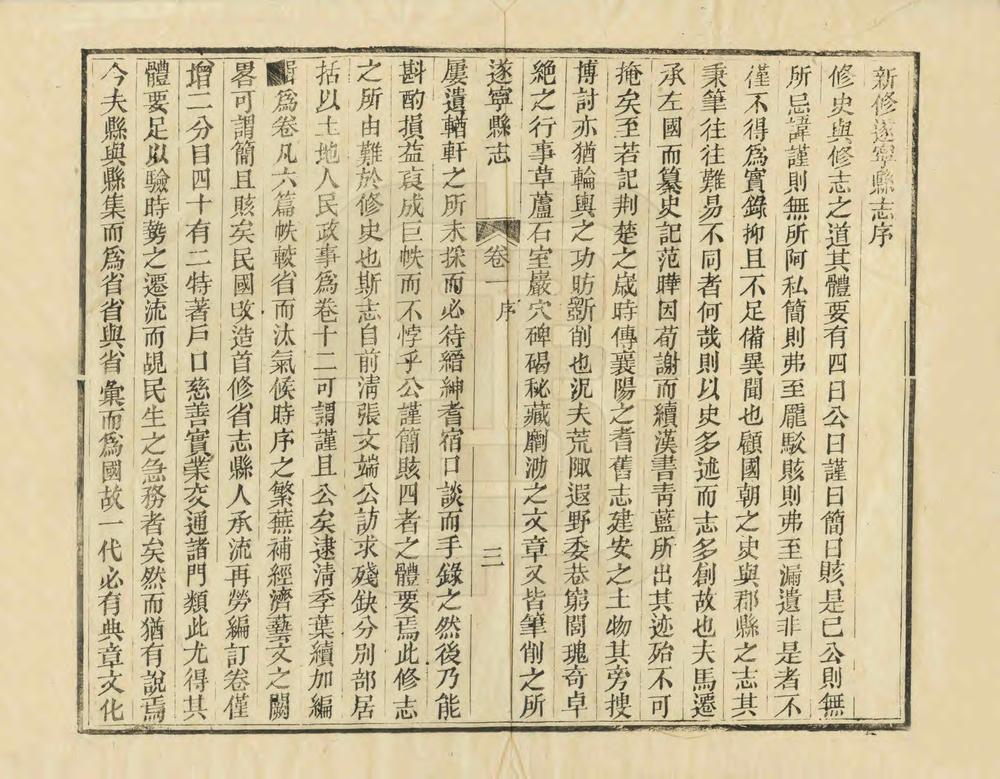 新修遂寧縣志序
修史與修志之道其體要有四曰公曰謹曰簡曰賅是已公則無
所忌諱謹則無所阿私簡則弗至龎駁賅則弗至漏遺非是者不
僅不得爲實錄抑且不足備異聞也顧國朝之史與郡縣之志其
秉筆往往難易不同者何哉則以史多述而志多創故也夫馬遷
承左國而纂史記范曄因荀謝而續漢書靑藍所出其迹殆不可
掩矣至若記荆楚之歲時傳襄陽之耆舊志建安之土物其旁搜
博討亦猶輪輿之功昉斵削也況夫荒陬遐野委巷窮閭瑰奇卓
絶之行事草蘆石室巖穴碑碣秘藏劘泐之文章又皆筆削之所
遂寧縣志 卷一 序 二
屢遺輶軒之所未採而必待縉紳耆宿口談而手錄之然後乃能
斟酌損益裒成巨帙而不悖乎公謹簡賅四者之體要焉此修志
之所由難於修史也斯志自前淸張文端公訪求殘缺分別部居
括以土地人民政事爲卷十二可謂謹且公矣逮淸季葉續加編
輯爲卷凡六篇帙較省而汰氣候時序之繁蕪補經濟藝文之闕
畧可謂簡且賅矣民國改造首修省志縣人承流再勞編訂卷僅
增二分目四十有二特著戶口慈善實業交通諸門類此尤得其
體要足以驗時勢之遷流而覘民生之急務者矣然而猶有說焉
今夫縣與縣集而爲省省與省彙而爲國故一代必有典章文化